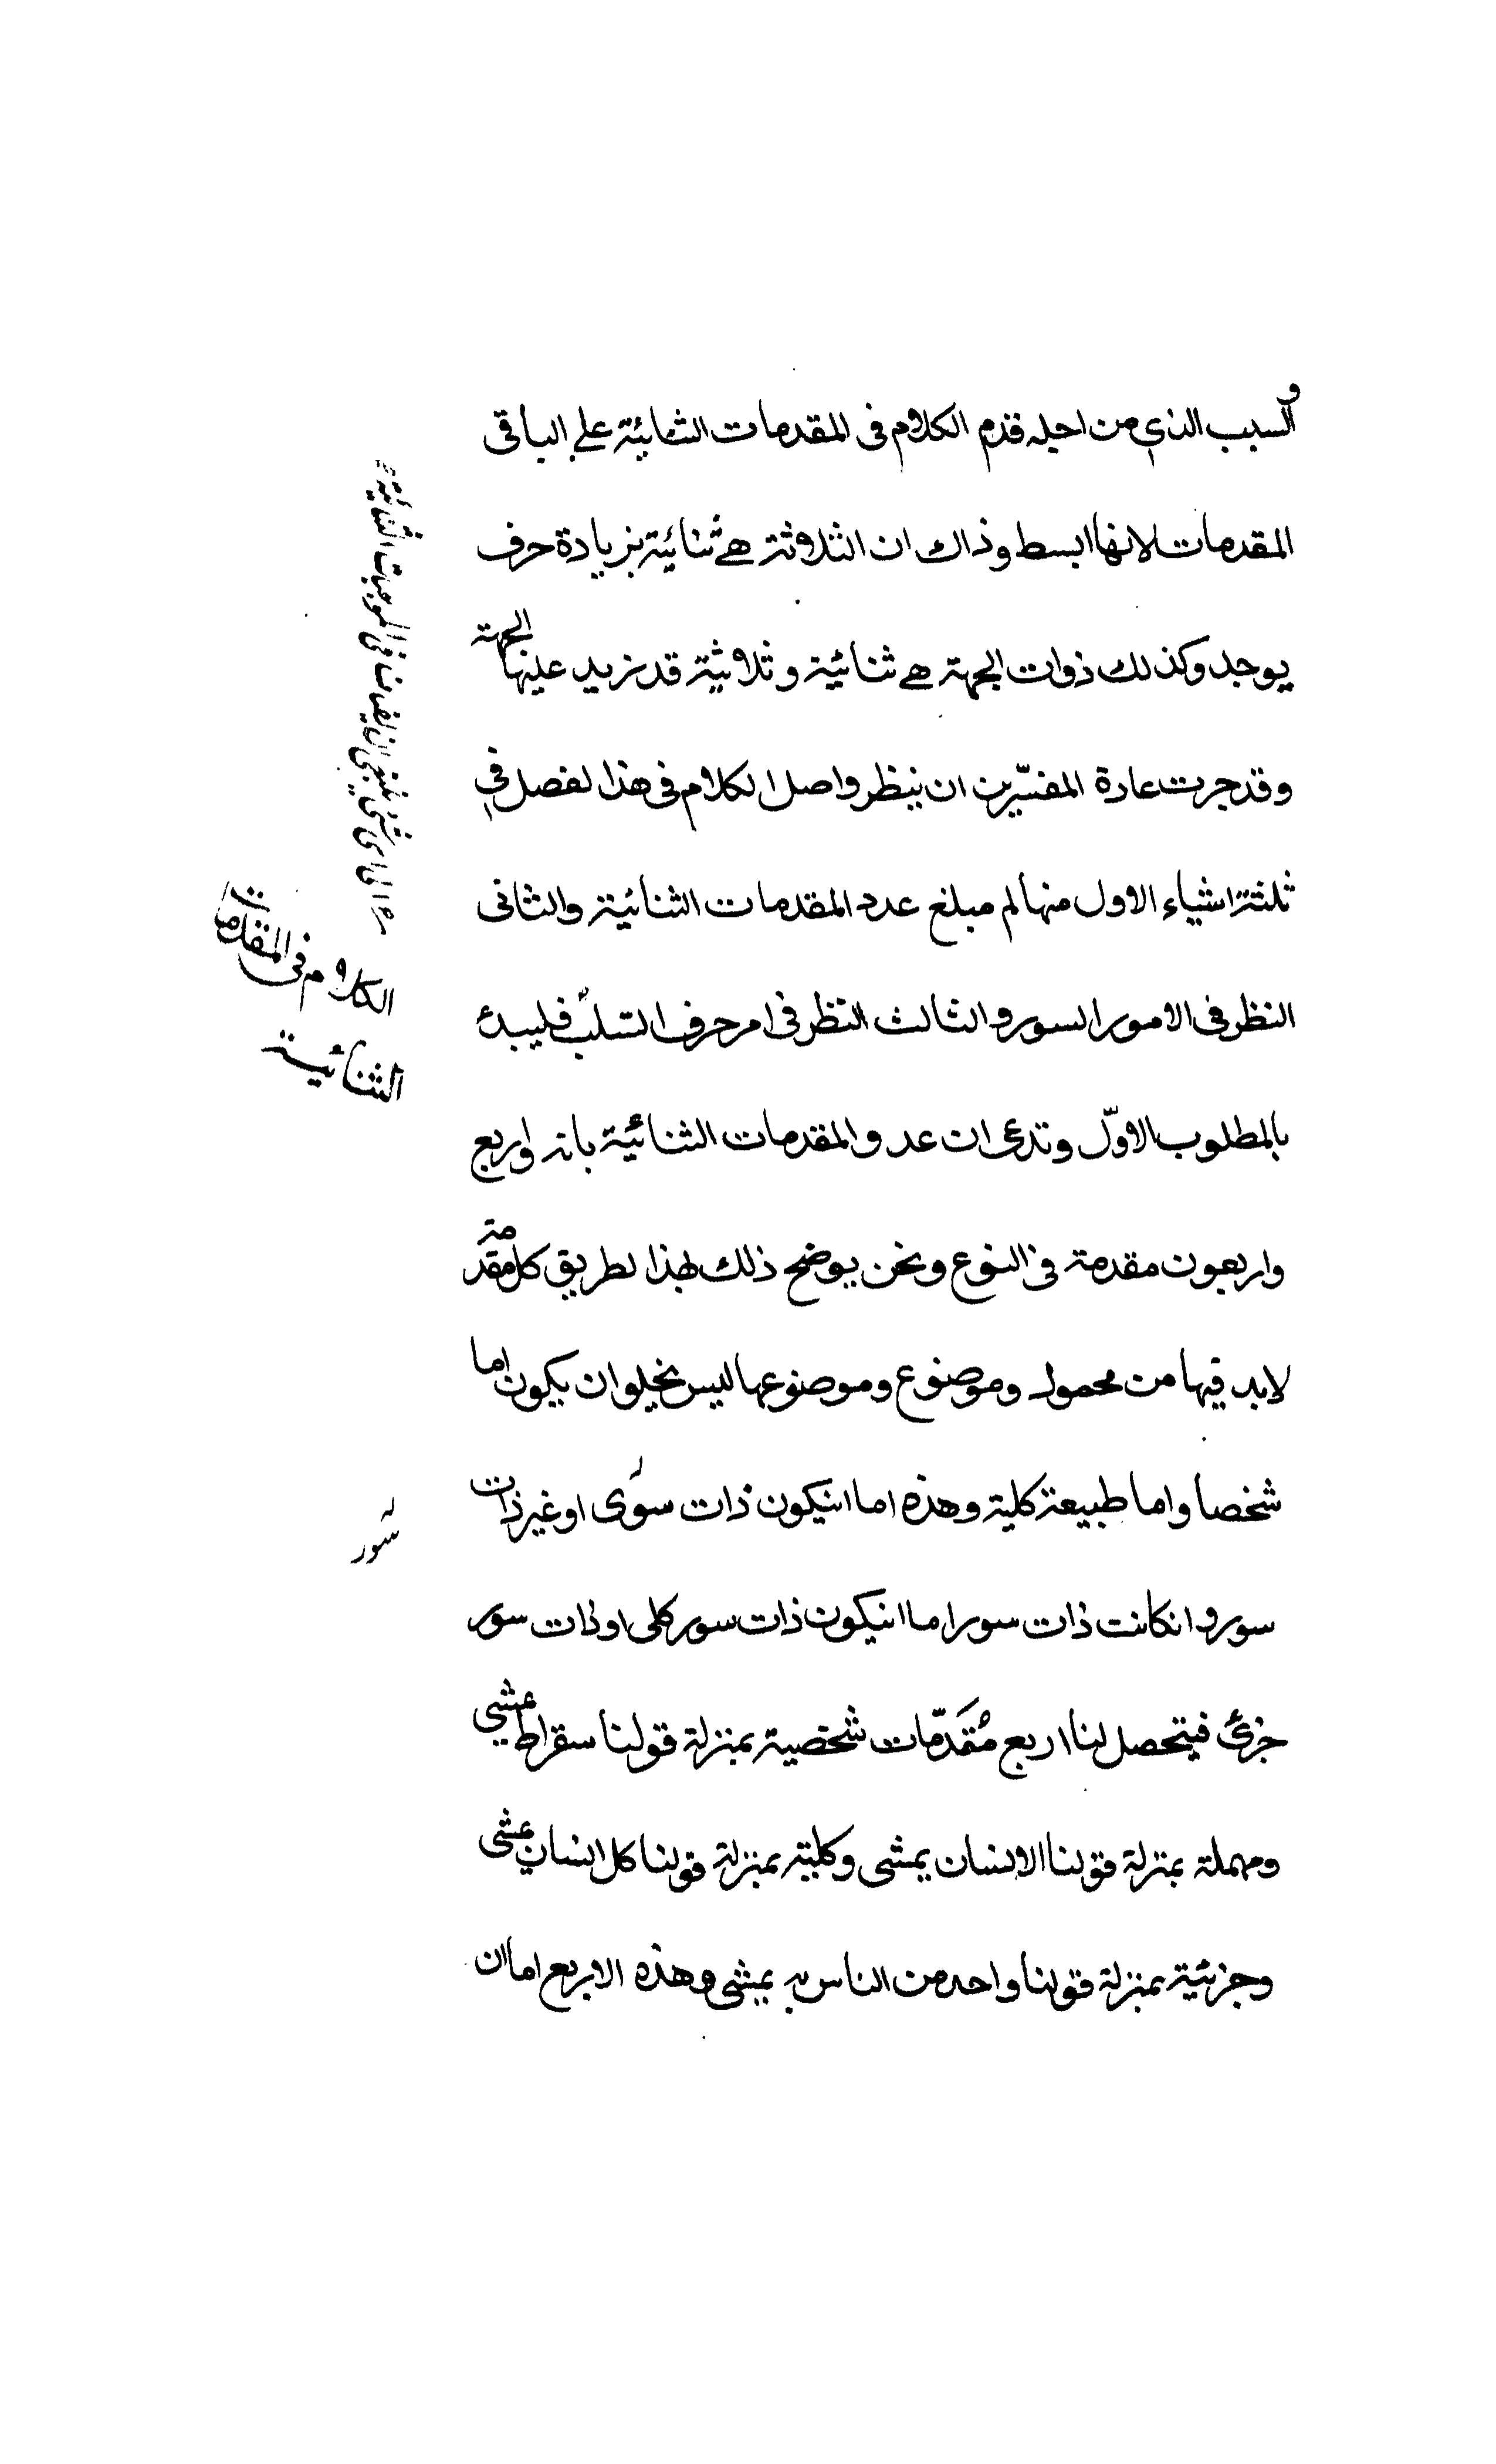 والسبب الذي من اجله قدم الكلام فى المقدمات الثنائية على الباقى
المقدمات لانها ابسط وذاك ان الثلاثة هى ثنائية بزيادة حرف
يوجد وكذلك ذوات الجهة هى ثنائية وثلاثية قد نزيد عليها الجهة
وقد جرت عادة المفسّرين ان ينظروا صل الكلام فى هذا لفصل في
ثلثة اشياء الاول منها لم مبلغ عدد المقدمات الثنائية والثانى
النظر فى الامور السور والثالث النظر فى امر حرف السلب فليبدء
بالمطلوب الاوّل وتدعى ان عدد المقدمات الثنائية بانه اربع
واربعون مقدمة فى النوع ونحن يوضح ذلك بهذا لطريق كل مقدمة
لابد فيها من محمول وموضوع وموضوعها ليس يخلو ان يكون اما
شخصا واما طبيعة كلية وهذه اما انيكون ذات سوى او غير ذات
سور وانكانت ذات سور اما انيكون ذات سور كلى او ذات سور
جزئ فيتحصل لنا اربع مُقَدّمات شخصية بمنزلة قولنا سقراط يمشي
ومهملة بمنزلة قولنا الانسان يمشى وكلية بمنزلة قولنا كل انسان يمشى
وجزئية بمنزلة قولنا واحد من الناس يمشى وهذه الاربع اما ان
الكلام فى المقدمات
الثنائية
سور